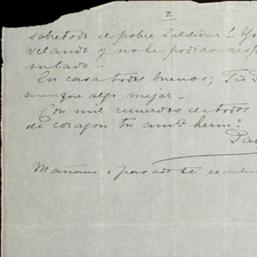 2
sobretodo el pobre Zaldivar! Yo
velando y no he podido desp
sulado.
En casa todos buenos; Tia
aunque algo mejor.
Con mil recuerdos de todos
de corazon tu amte. herm.º
Pa
Mañana o pasado te escribi